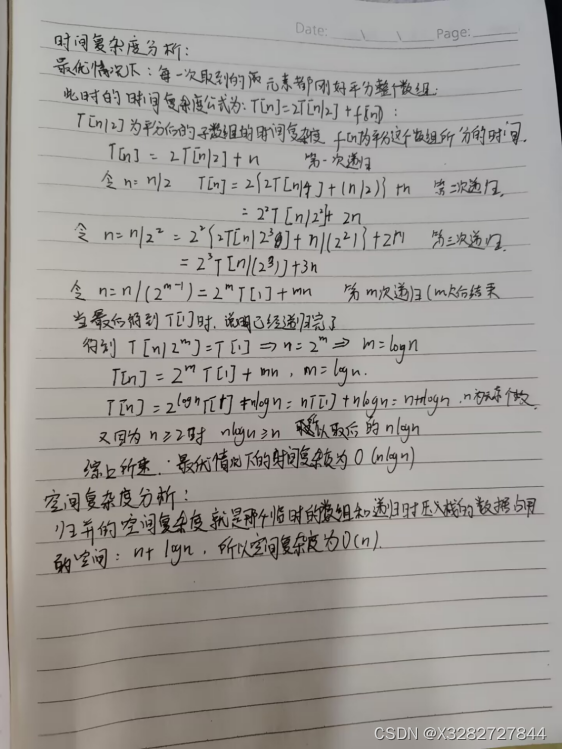 Date: Page:
时间复杂度分析:
最优情况下:每一次取到的元素都刚好平分整个数组
此时的时间复杂度公式为:T[n]=2T[n/2]+f(n):
T[n/2]为平分后的子数组的时间复杂度 f[n]为平分这个数组所分的时间.
T[n] = 2T[n/2]+n 第一次递归
令 n=n/2 T[n]=2{2T[n/4]+(n/2)}+n 第二次递归
= 2²T[n/2²]+2n
令 n=n/2² = 2²{2T[n/2³]+n/(2²)}+2n 第三次递归
= 2³T[n/(2³)]+3n
令 n=n/(2^(m-1))=2^m T[1]+mn 第m次递归(m次后结束
当最后得到T[1]时,说明已经递归完了
得到 T[n/2^m]=T[1] ⇒ n=2^m ⇒ m=logn
T[n]=2^m T[1]+mn, m=logn.
T[n]=2^(logn)T[1]+nlogn=nT[1]+nlogn=n+nlogn.n为元素个数
又因为n≥2时 nlogn≥n 所以取后的nlogn
综上所来:最优情况下的时间复杂度为O(nlogn)
空间复杂度分析:
归并的空间复杂度就是那个临时的数组和递归时压入栈的数据占用
的空间:n+logn,所以空间复杂度为O(n).
CSDN @X3282727844